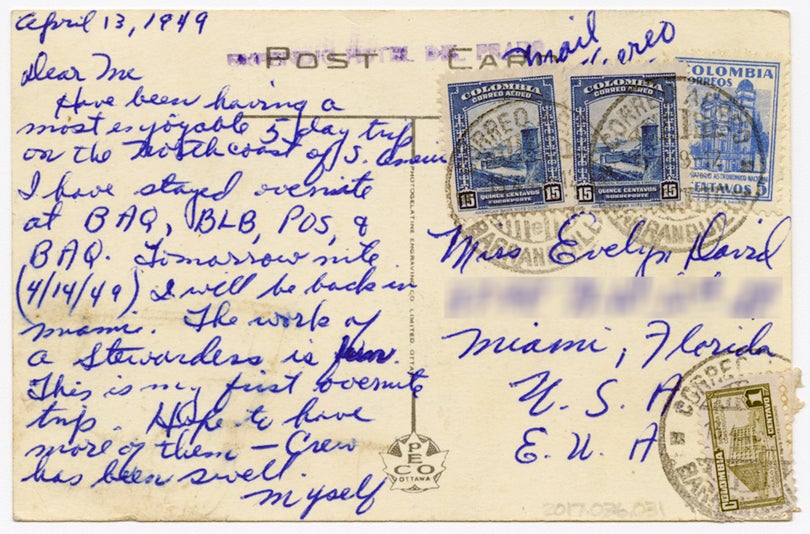 April 13, 1949
POST CARD
HOTEL DEL PRADO
mail
Dear Me
Have been having a
most enjoyable 5 day trip
on the North coast of S.
I have stayed overnite
at BAQ, BLB, POS, &
BAQ. Tomorrow nite
(4/14/49) I will be back in
miami. The work of
a Stewardess is fun.
This is my first overnite
trip. Hope to have
more of them - Crew
has been swell.
myself
PHOTOGELATINE ENGRAVING CO. LIMITED, OTTAWA
PECO
OTTAWA
COLOMBIA
CORREO AEREO
15 QUINCE CENTAVOS 15
SOBREPORTE
COLOMBIA
CORREO AEREO
15 QUINCE CENTAVOS 15
SOBREPORTE
COLOMBIA
CORREOS
OBSERVATORIO ASTRONOMICO
CENTAVOS 5
CORREO AEREO
BARRANQUILLA
CORREO AEREO
BARRANQUILLA
Miss Evelyn David
Miami, Florida
U. S. A
E. U. A
CORREO
COLOMBIA
1 CENTAVO
2017.036.031